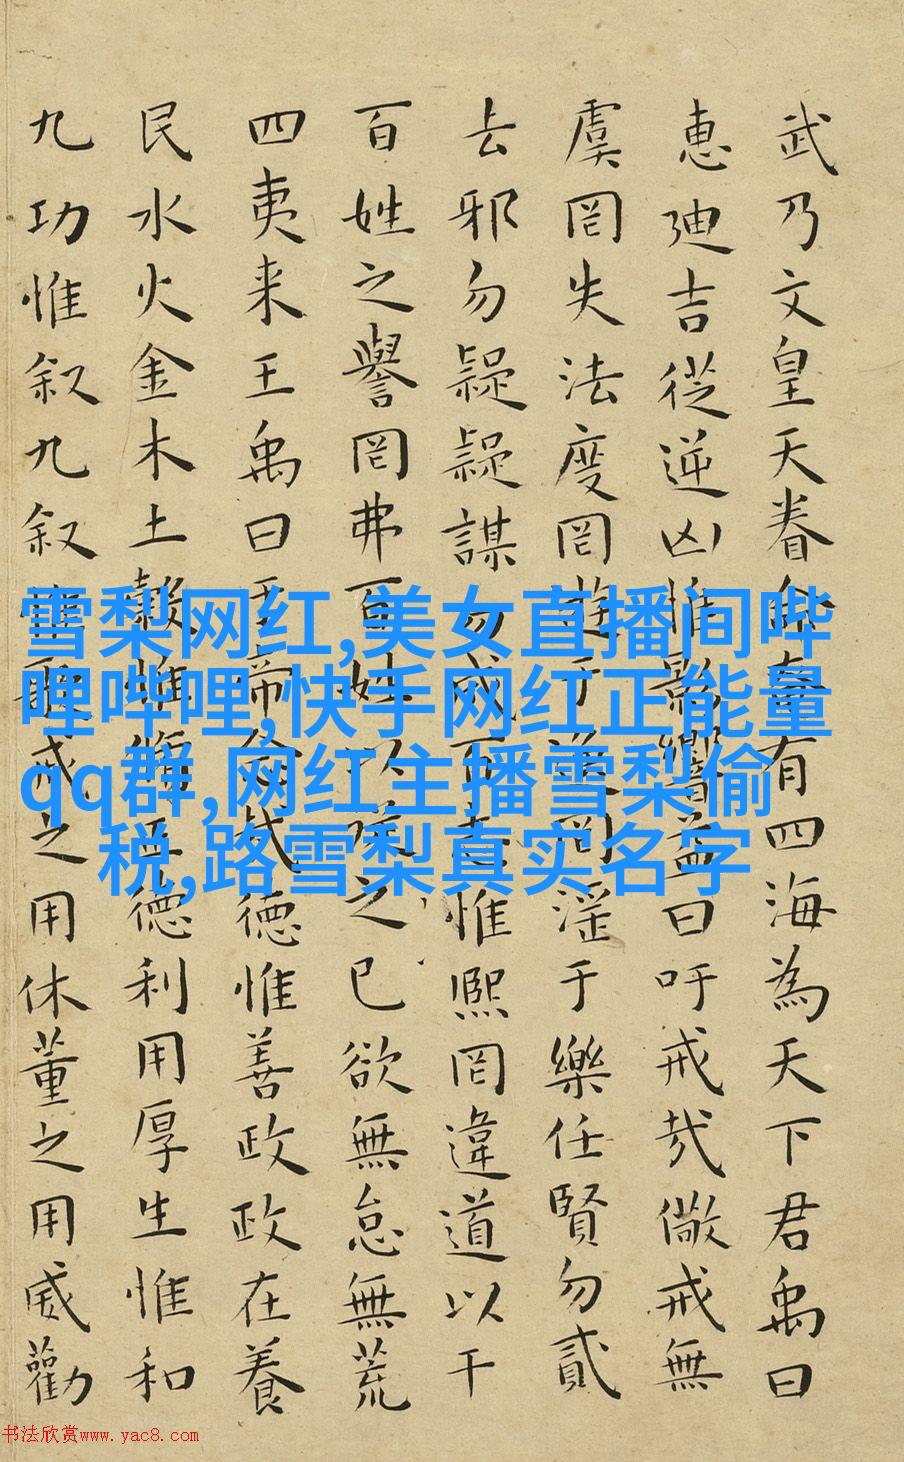 武乃文皇天眷命奄有四海為天下君禹曰
惠迪吉從逆凶惟影響益曰吁戒哉儆戒無
虞罔失法度罔遊于逸罔淫于樂任賢勿貳
去邪勿疑疑謀勿成百志惟熙罔違道以干
百姓之譽罔弗百姓以之已欲無怠無荒
四夷来王禹曰於帝念哉德惟善政政在養
民水火金木土穀惟修正德利用厚生惟和
九功惟叙九叙惟歌戒之用休董之用威勸
雪梨网红,美女直播间哔
哩哔哩,快手网红正能量
qq群,网红主播雪梨偷
税,路雪梨真实名字
书法欣赏www.yac8.com